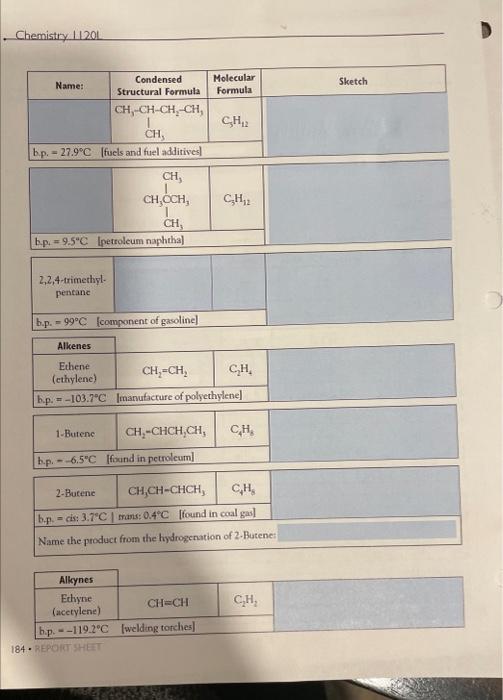 Chemistry 1120L
Name:
Condensed Structural Formula
Molecular Formula
Sketch
CH₃-CH-CH₂-CH₃
|
CH₃
C₅H₁₂
b.p. = 27.9°C [fuels and fuel additives]
CH₃
|
CH₃CCH₃
|
CH₃
C₅H₁₂
b.p. = 9.5°C [petroleum naphtha]
2,2,4-trimethyl-
pentane
b.p. = 99°C [component of gasoline]
Alkenes
Ethene
(ethylene)
CH₂=CH₂
C₂H₄
b.p. = -103.7°C [manufacture of polyethylene]
1-Butene
CH₂=CHCH₂CH₃
C₄H₈
b.p. = -6.5°C [found in petroleum]
2-Butene
CH₃CH=CHCH₃
C₄H₈
b.p. = cis: 3.7°C | trans: 0.4°C [found in coal gas]
Name the product from the hydrogenation of 2-Butene:
Alkynes
Ethyne
(acetylene)
CH≡CH
C₂H₂
b.p. = -119.2°C [welding torches]
184 • REPORT SHEET